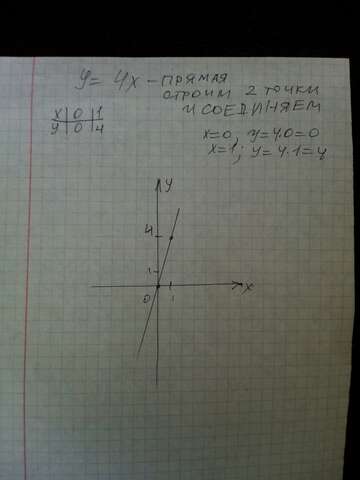 y = 4x - ПРЯМАЯ
СТРОИМ 2 ТОЧКИ
И СОЕДИНЯЕМ
x | 0 | 1
y | 0 | 4
x=0, y=4.0=0
x=1; y=4.1=4
y
4
1
0 1 x